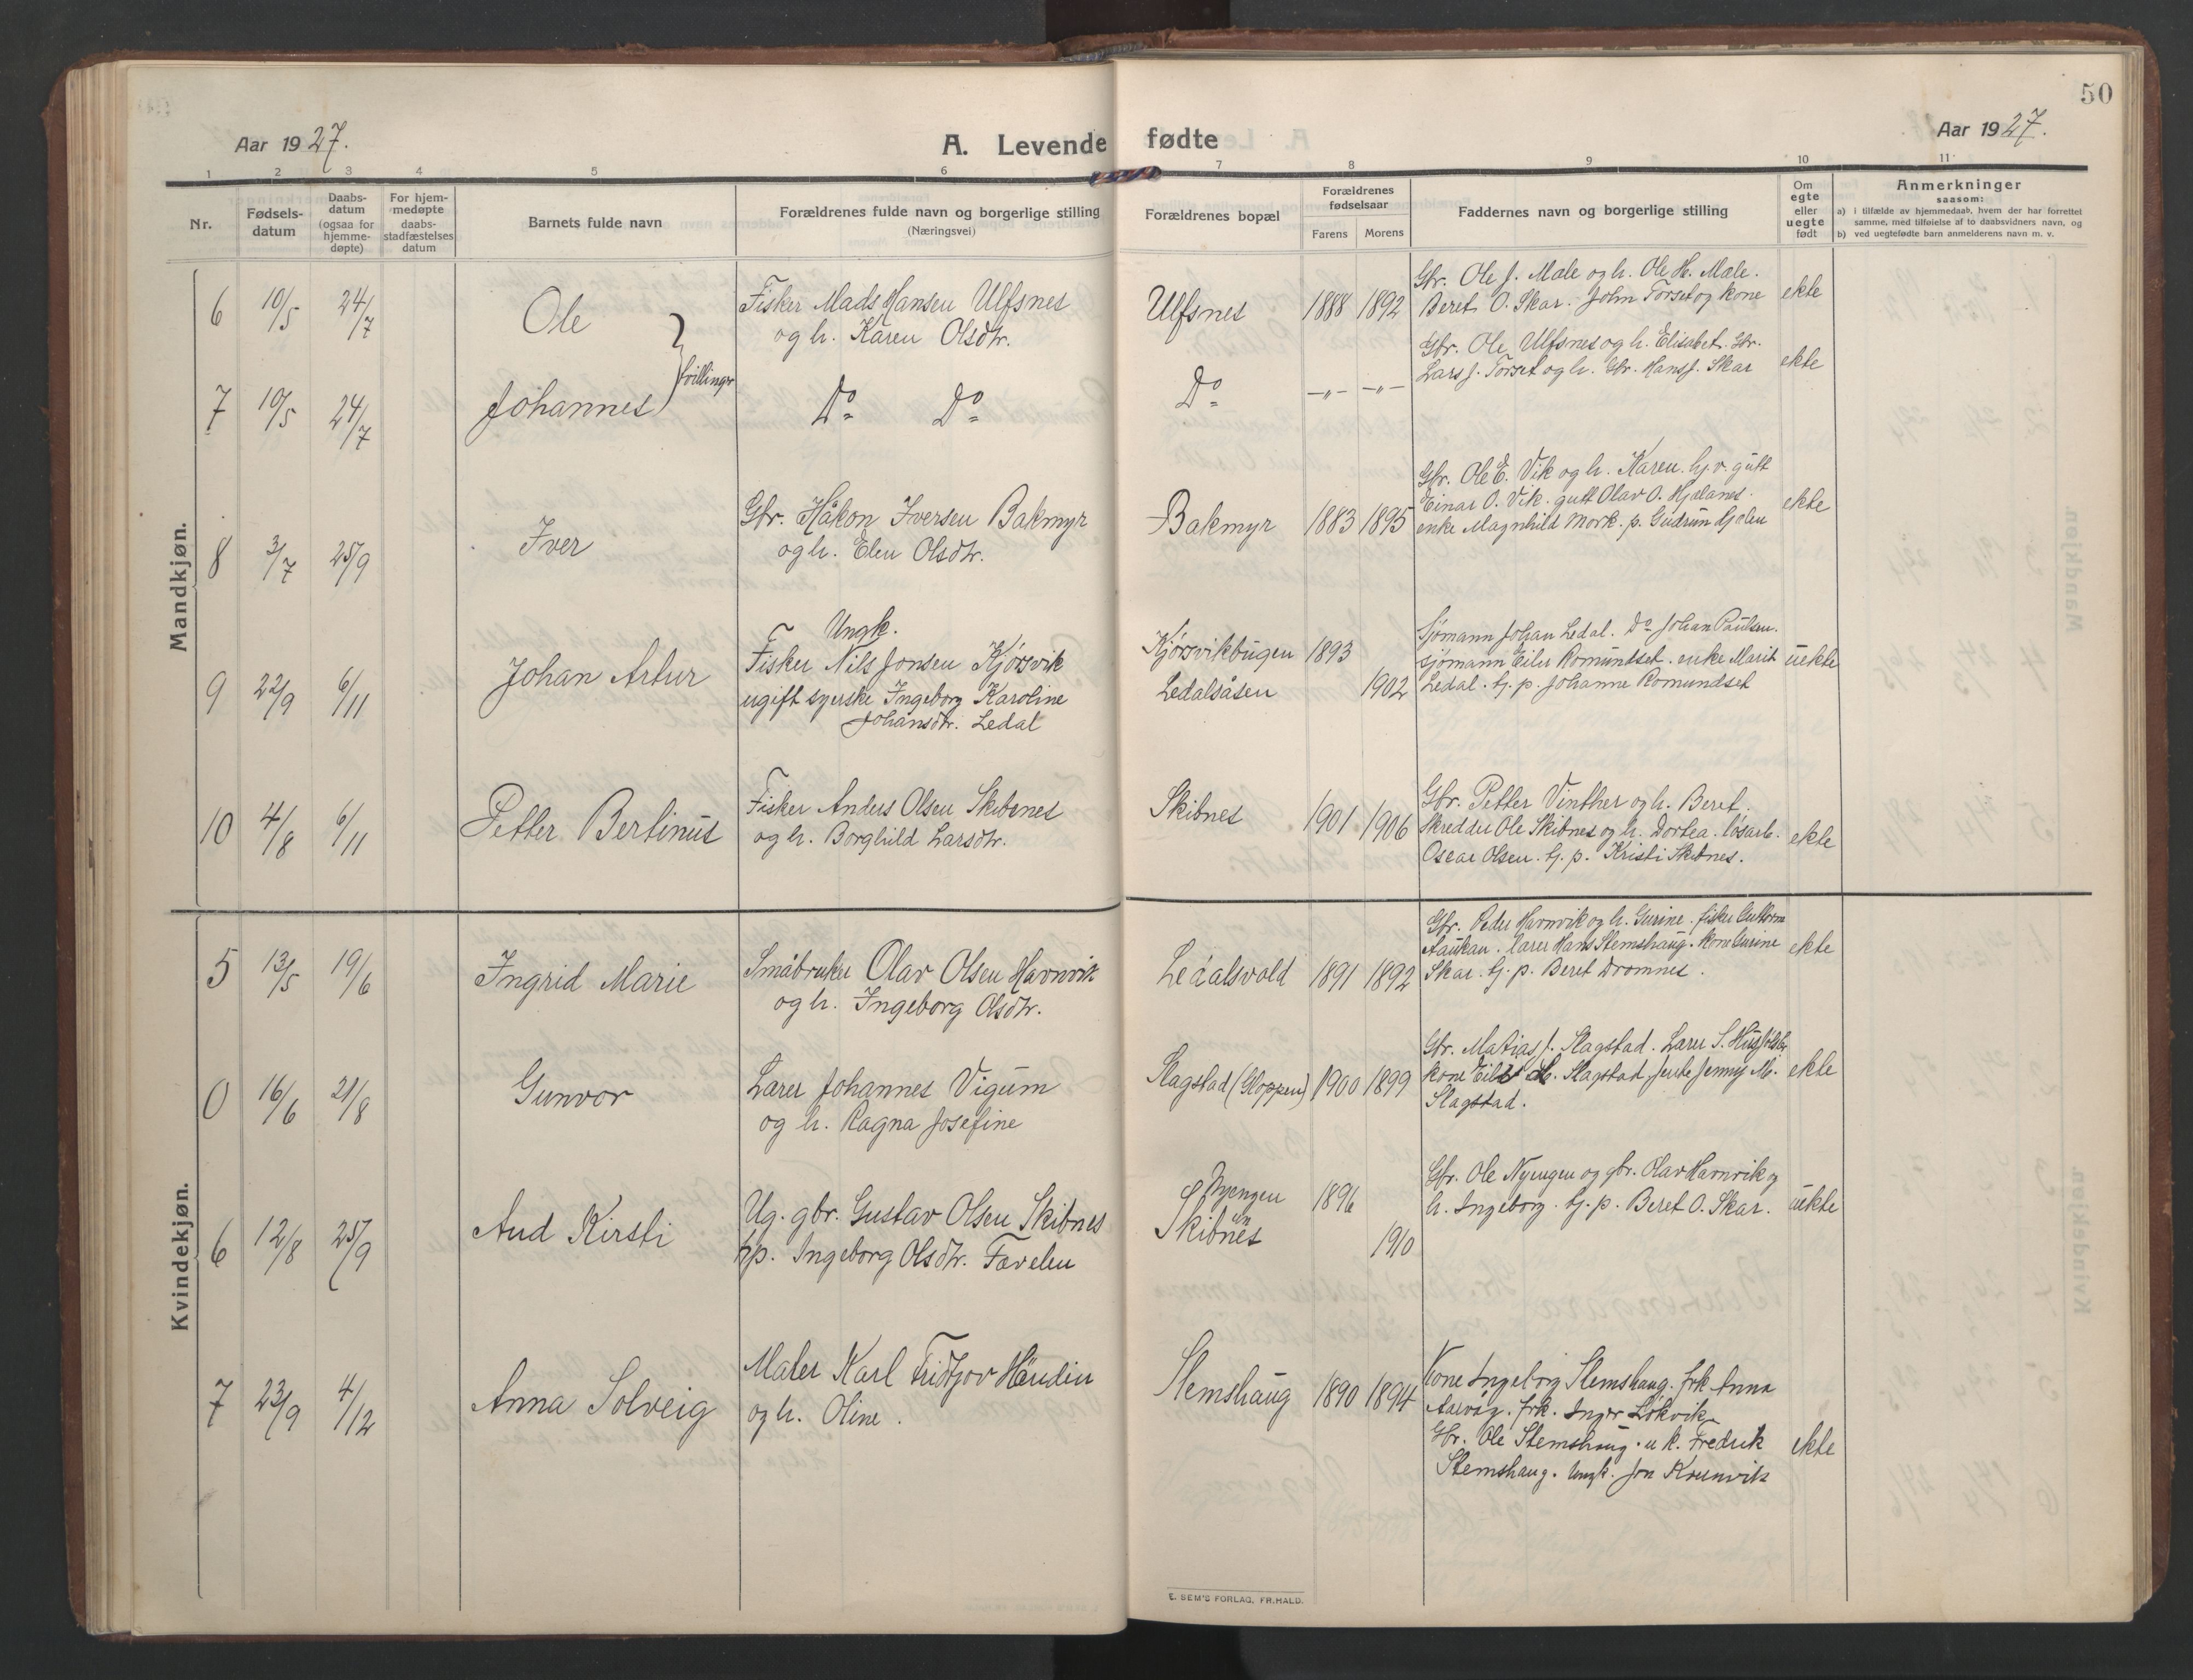 50
Aar 1927.
A. Levende fødte
Aar 1927.
1 2 3 4 5 6 7 8 9 10 11
Nr.
Fødsels-
datum
Daabs-
datum
(ogsaa for
hjemme-
døpte)
For hjem-
medøpte
daabs-
stadfæstelses
datum
Barnets fulde navn
Forældrenes fulde navn og borgerlige stilling
(Næringsvei)
Forældrenes bopæl
Forældrenes
fødselsaar
Farens Morens
Faddernes navn og borgerlige stilling
Om
egte
eller
uegte
født
Anmerkninger
saasom:
a) i tilfælde av hjemmedaab, hvem der har forrettet
samme, med tilføielse af to daabsvidners navn, og
b) ved uegtefødte barn anmelderens navn m. v.
Mandkjøn.
6 10/5 24/7 Ole
Fisker Mads Hansen Ulfsnes
og h. Karen Olsdtr.
Ulfsnes 1888 1892
Gbr. Ole J. Mæle og h. Ole H. Mæle.
Beret O. Skar. John Torset og kone
ekte
tvillinger
7 10/5 24/7 Johannes
Do Do
Do —„— —„—
Gbr. Ole Ulfsnes og h. Elisabet. Gbr.
Lars J. Torset og h. Gbr. Hans J. Skar
ekte
8 3/7 25/9 Iver
Gbr. Håkon Iversen Bakmyr
og h. Elen Olsdtr.
Bakmyr 1883 1895
Gbr. Ole E. Vik og h. Karen. hj. v. gutt
Einar O. Vik. gutt Olav O. Hjelanes.
enke Magnhild Mork. p. Gudrun Hjelen
ekte
9 22/9 6/11 Johan Artur
Ungk.
Fisker Nils Jonsen Kjørsvik
ugift syerske Ingeborg Karoline
Johansdtr. Ledal
Kjørsvikbugen 1893
Ledalsåsen 1902
Sjømann Johan Ledal. Do Johan Paulsen.
sjømann Eiler Romundset. enke Marit
Ledal. hj. p. Johanne Romundset
uekte
10 4/8 6/11 Petter Bertinus
Fisker Anders Olsen Skibenes
og h. Borghild Larsdtr.
Skibnes 1901 1906
Gbr. Petter Vinther og h. Beret.
Skredder Ole Skibnes og h. Dortea. løsarb.
Oscar Olsen. hj. p. Kristi Skibnes.
ekte
Kvindekjøn.
5 13/5 19/6 Ingrid Marie
Småbruker Olav Olsen Havnvik
og h. Ingeborg Olsdtr.
Ledalsvold 1891 1892
Gbr. Peder Havnvik og h. Gurine. fisker Guttorm
Aaukan. lærer Hans Stemshaug. kone Gurine
Skar. hj. p. Beret Dromnes.
ekte
0 16/6 21/8 Gunvor
Lærer Johannes Vigum
og h. Ragna Josefine
Slagstad (Gloppen) 1900 1899
Gbr. Matias J. Slagstad. Lærer S.
kone M. Slagstad, jente Jenny M.
Slagstad.
ekte
6 12/8 25/9 Aud Kirsti
Ug. gbr. Gustav Olsen Skibnes
hp. Ingeborg Olsdtr. Tævelen
Nyengen 1896
Skibnes 1910
Gbr. Ole Nyengen og gbr. Olav Havnvik og
h. Ingeborg. hj. p. Beret O. Skar.
uekte
7 23/9 4/12 Anna Solveig
Maler Karl Fridtjov Händin
og h. Oline.
Stemshaug 1890 1894
Kone Ingeborg Stemshaug. frk. Anna
Aasvåg. frk. Inger Løkvik
Gbr. Ole Stemshaug. u k. Fredrik
Stemshaug. Ungk. Jon Krunvik
ekte
E. SEM'S FORLAG, FR.HALD.